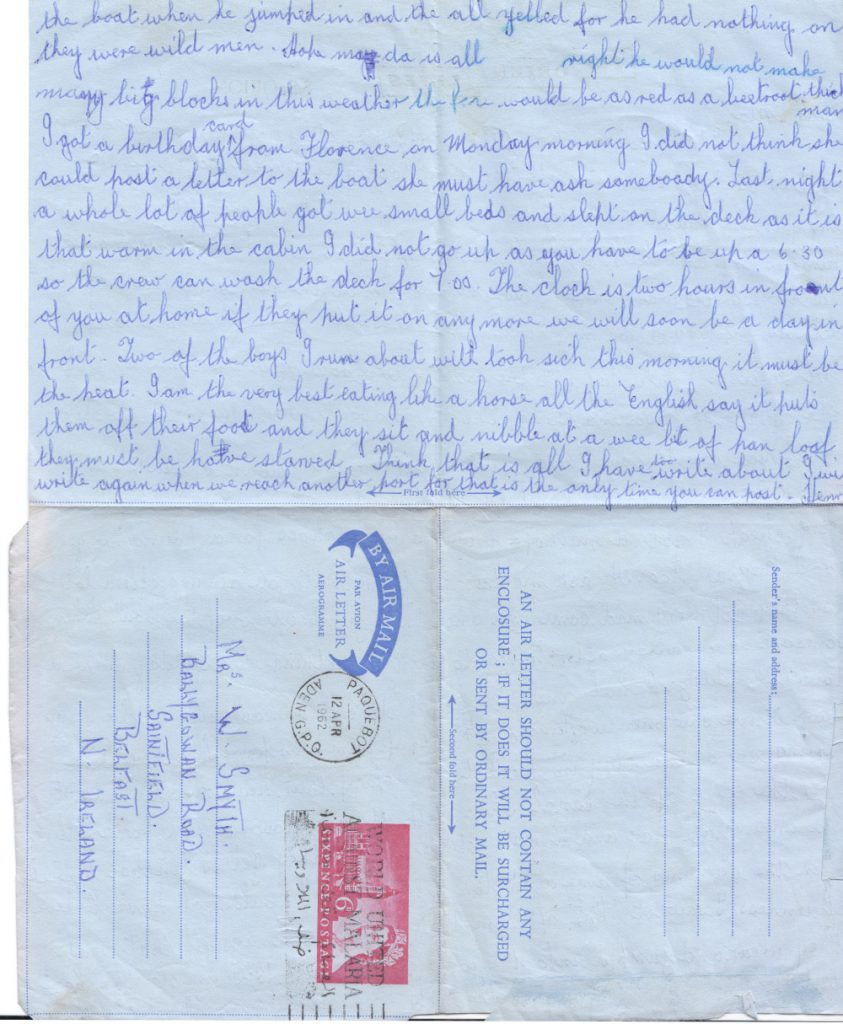 the boat when he jumped in and the all yelled for he had nothing on
they were wild men. Hope da is all right he would not make
many big blocks in this weather the fire would be as red as a beetroot thick
man
card
I got a birthday from Florence on Monday morning I did not think she
could post a letter to the boat she must have ask someboady. Last night
a whole lot of people got wee small beds and slept on the deck as it is
that warm in the cabin I did not go up as you have to be up a 6.30
so the crew can wash the deck for 7 00. The clock is two hours in front
of you at home if they put it on any more we will soon be a day in
front. Two of the boys I run about with took sick this morning it must be
the heat. I am the very best eating like a horse all the English say it puts
them off their food and they sit and nibble at a wee bit of pan loaf
they must be starved Think that is all I have too write about I
write again when we reach another port for that is the only time you can post.
First fold here
BY AIR MAIL
PAR AVION
AIR LETTER
AEROGRAMME
PAQUEBOT
12 APR
1962
ADEN G.P.O.
WORLD UNITED
AGAINST MALARIA
SIXPENCE POSTAGE
6
Mrs. W. SMYTH.
BALLYGOWAN ROAD.
SAINTFIELD.
BELFAST.
N. IRELAND.
Second fold here
AN AIR LETTER SHOULD NOT CONTAIN ANY
ENCLOSURE; IF IT DOES IT WILL BE SURCHARGED
OR SENT BY ORDINARY MAIL.
Sender's name and address: